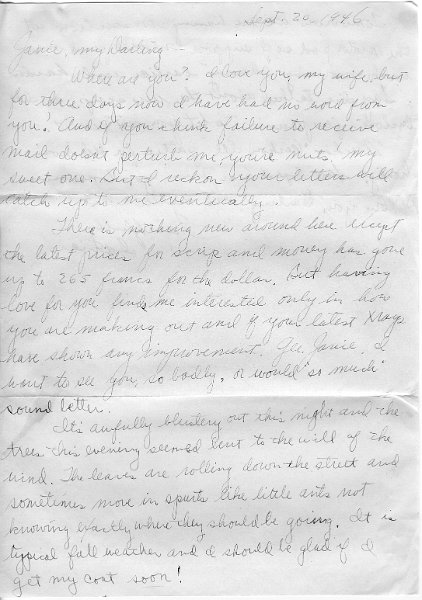 Sept. 20, 1946
Janie, my Darling --
Where are you? I love you, my wife, but
for three days now I have had no word from
you! And if you think failure to receive
mail doesn't perturb me, you're nuts! my
sweet one. But I reckon your letters will
catch up to me eventually.
There is nothing new around here except
the latest prices for scrip and money has gone
up to 265 francs for the dollar. But having
love for you finds me interested only in how
you are making out and if your latest Xrays
have shown any improvement. Gee, Janie, I
want to see you, so badly, or would "so much"
sound better.
It's awfully blustery out this night and the
trees this evening seemed bent to the will of the
wind. The leaves are rolling down the street and
sometimes move in spurts like little ants not
knowing exactly where they should be going. It is
typical fall weather and I should be glad if I
get my coat soon!